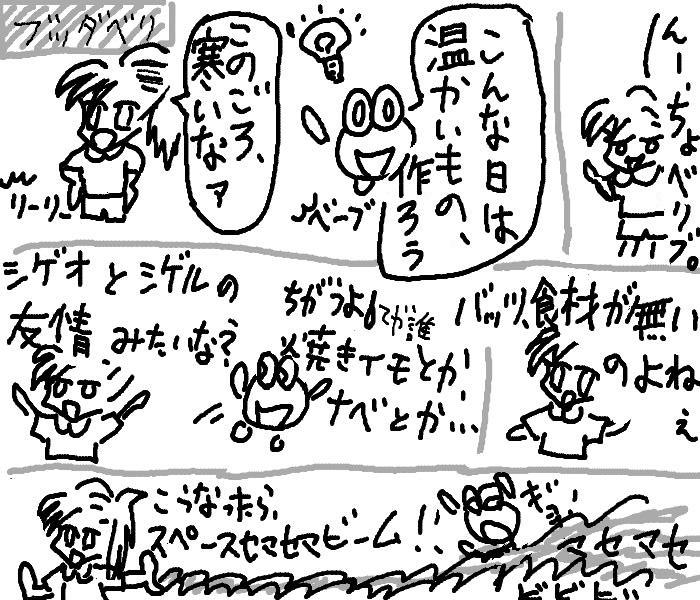 ブッダベリ
このごろ、
寒いなァ
リーリー
こんな日は
温かいもの、
作ろう
ベーブ
んー
ちょベリブ。
シゲオとシゲルの
友情みたいな?
ちがうよ
てか誰
焼きイモとか
ナベとか…
バッツ、食材が無い
のよねぇ
こうなったら、
スペースセマセマビーム!!
ギョ
マセマセ
ビビビ